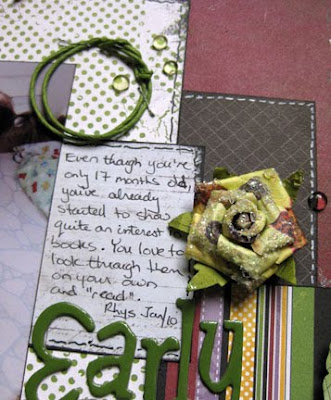 Even though you're
only 17 months old,
you've already
started to show
quite an interest
books. You love to
look through them
on your own
and "read".
Rhys Jan/10
Early